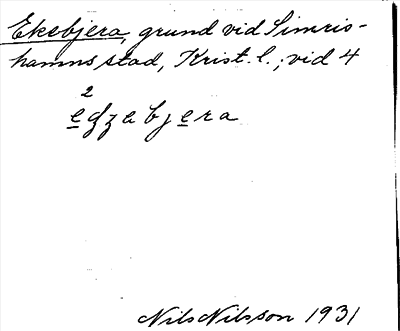 Ekebjera, grund vid Simris-
hamns stad, Krist. l.; vid 4
2
Nils Nilsson 1931